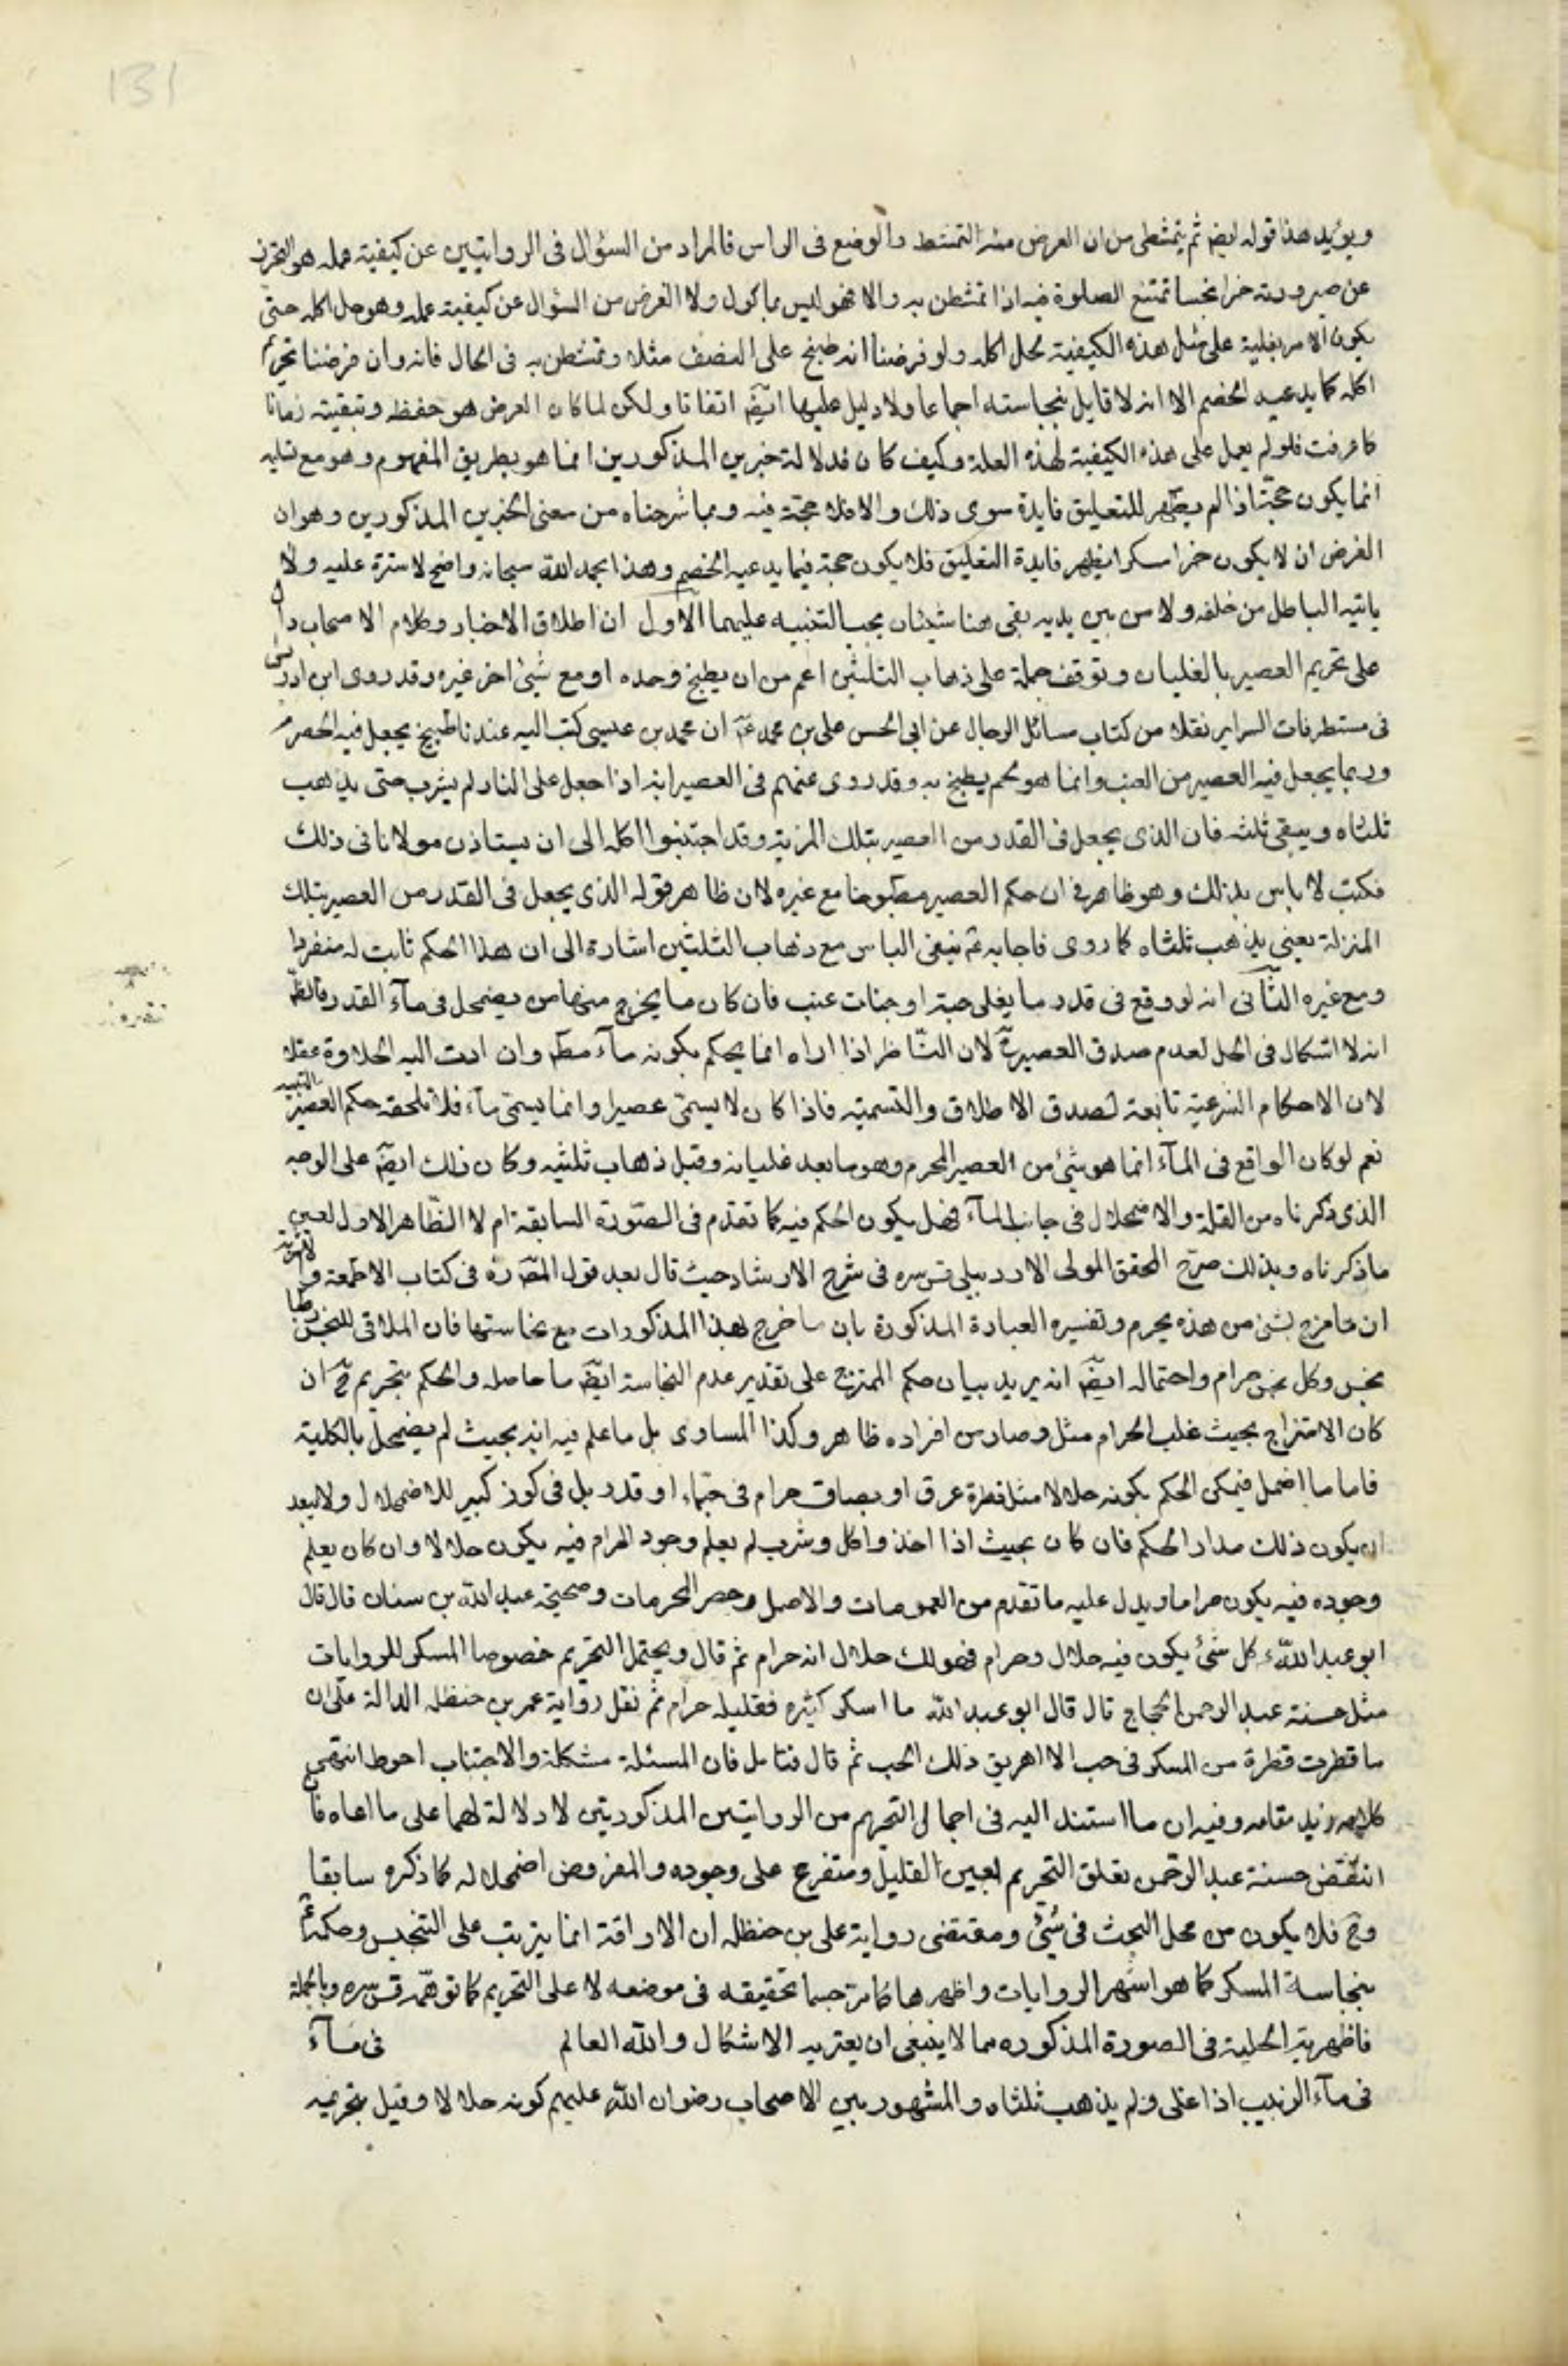 131
ويؤيد هذا قوله ايضا ثم يتمشطن من ان الغرض منه التمشط والوضع فى الراس فالمراد من السؤال فى الروايتين عن كيفية عمله هو التحرز
عن صيرورته خمرا نجسا تمتنع الصلوة فيه اذا تمشطن به والا فهو ليس بماكول ولا الغرض من السؤال عن كيفية عمله وهو حل اكله حتى
يكون الامر بغليه على مثل هذه الكيفية لحل اكله ولو فرضنا انه طبخ على النصف مثلا وتمشطن به فى الحال فانه وان فرضنا تحريم
اكله كما يدعيه الخصم الا انه لا قايل بنجاسته اجماعا ولا دليل عليها ايضا اتفاقا ولكن لما كان الغرض هو حفظه وتبقيته زمانا
كما عرفت فلو لم يعمل على هذه الكيفية لهذه العلة وكيف كان فدلالة خبرين المذكورين انما هو بطريق المفهوم وهو مع تسليمه
انما يكون حجة اذا لم يظهر للتعليق فايدة سوى ذلك والا فلا حجة فيه ومما شرحناه من معنى الخبرين المذكورين وهو ان
الغرض ان لا يكون خمرا مسكرا يظهر فايدة التعليق فلا يكون حجة فيما يدعيه الخصم وهذا بحمد الله سبحانه واضح لا سترة عليه ولا
ياتيه الباطل من خلفه ولا من بين يديه بقى هنا شيئان يجب التنبيه عليهما الاول ان اطلاق الاخبار وكلام الاصحاب دال
على تحريم العصير بالغليان وتوقف حله على ذهاب الثلثين اعم من ان يطبخ وحده او مع شيئ اخر غيره وقد روى ابن ادريس
فى مستطرفات السراير نقلا من كتاب مسائل الرجال عن ابى الحسن على بن محمد ع ان محمد بن عيسى كتب اليه عندنا طبيخ يجعل فيه الحصرم
وربما يجعل فيه العصير من العنب وانما هو لحم يطبخ به وقد روى عنهم فى العصير انه اذا جعل على النار لم يشرب حتى يذهب
ثلثاه ويبقى ثلثه فان الذى يجعل فى القدر من العصير بتلك المنزلة وقد اجتنبوا اكله الى ان يستاذن مولانا فى ذلك
فكتب لا باس بذلك وهو ظاهر فى ان حكم العصير مطبوخا مع غيره لان ظاهر قوله الذى يجعل فى القدر من العصير بتلك
المنزلة يعنى يذهب ثلثاه كما روى فاجابه ع بنفى الباس مع ذهاب الثلثين اشارة الى ان هذا الحكم ثابت له منفردا
ومع غيره الثانى انه لو وقع فى قدر ما يغلى حبة او حبات عنب فان كان ما يخرج منها من يضمحل فى مآء القدر فالظ
انه لا اشكال فى الحل لعدم صدق العصيرية لان الناظر اذا اراه انما يحكم بكونه مآء مط وان ادت اليه الحلاوة عقلا
لان الاحكام الشرعية تابعة لصدق الاطلاق والتسمية فاذا كان لا يسمى عصيرا وانما يسمى مآء فلا تلحقه حكم العصير البتة
نعم لو كان الواقع فى المآء انما هو شئ من العصير المحرم وهو ما بعد غليانه وقبل ذهاب ثلثيه وكان ذلك ايضا على الوجه
الذى ذكرناه من القلة والاضمحلال فى جانب المآء فهل يكون الحكم فيه كما تقدم فى الصورة السابقة ام لا الظاهر الاول لعين
ما ذكرناه وبذلك صرح المحقق المولى الاردبيلى قدس سره فى شرح الارشاد حيث قال بعد قول المص ره فى كتاب الاطعمة والاشربة
ان ما مزج بشئ من هذه يحرم وتفسيره العبارة المذكورة بان ما خرج لهذا المذكورات مع نجاستها فان الملاقى للنجس رطبا
نجس وكل نجس حرام واحتماله ايضا انه يريد بيان حكم الممتزج على تقدير عدم النجاسة ايضا ما حاصله والحكم بتحريمه ح ان
كان الامتزاج بحيث غلب الحرام مثل وصار من افراده ظاهر وكذا المساوى بل ما علم فيه انه بحيث لم يضمحل بالكلية
فاما ما اضمحل فيمكن الحكم بكونه حلالا مثل قطرة عرق او بصاق حرام فى حب ماء او قدر بل فى كوز كبير للاضمحلال ولا يبعد
ان يكون ذلك مدار الحكم فان كان بحيث اذا اخذ واكل وشرب لم يعلم وجود الحرام فيه يكون حلالا وان كان يعلم
وجوده فيه يكون حراما ويدل عليه ما تقدم من العمومات والاصل وحصر المحرمات وصحيحة عبد الله بن سنان قال قال
ابو عبد الله ع كل شئ يكون فيه حلال وحرام فهو لك حلال انه حرام ثم قال ويحتمل التحريم خصوصا المسكر للروايات
مثل حسنة عبد الرحمن الحجاج قال قال ابو عبد الله ما اسكر كثيره فقليله حرام ثم نقل رواية عمر بن حنظله الدالة على ان
ما قطرت قطرة من المسكر فى حب الا اهريق ذلك الحب ثم قال فتامل فان المسئلة مشكلة والاجتناب احوط انتهى
كلامه زيد مقامه وفيه ان ما استند اليه فى اجمالى التحريم من الروايتين المذكوريتن لا دلالة لهما على ما ادعاه فان
انتقض حسنة عبد الرحمن تعلق التحريم لعين القليل ومتفرع على وجوده والمفروض اضمحلاله كما ذكره سابقا
وح فلا يكون من محل البحث فى شئ ومقتضى رواية على بن حنظله ان الاراقة انما يترتب على التنجيس وحكمه ع
بنجاسة المسكر كما هو اشهر الروايات واظهرها كما مر حسبما تحقيقه فى موضعه لا على التحريم كما توهمه قدس سره وبالجملة
فاظهرية الحلية فى الصورة المذكوره مما لا ينبغى ان يعتريه الاشكال والله العالم فى مآء
فى مآء الزبيب اذا غلى ولم يذهب ثلثاه والمشهور بين الاصحاب رضوان الله عليهم كونه حلالا وقيل بتحريمه